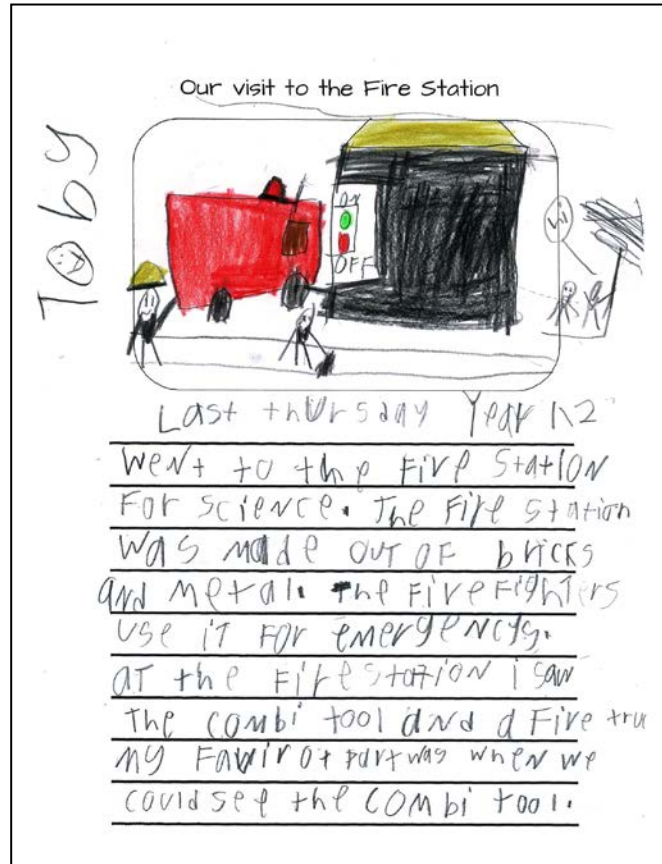 Our visit to the Fire Station
Toby
ON
OFF
hi
Last thursday Year 1\2
went to the Fire Station
For science. The Fire station
was made out of bricks
and metal. the FireFighters
use it For emergencys.
at the Firestation i saw
the combi tool and a Fire tru
my Favirot part was when we
could see the combi tool.